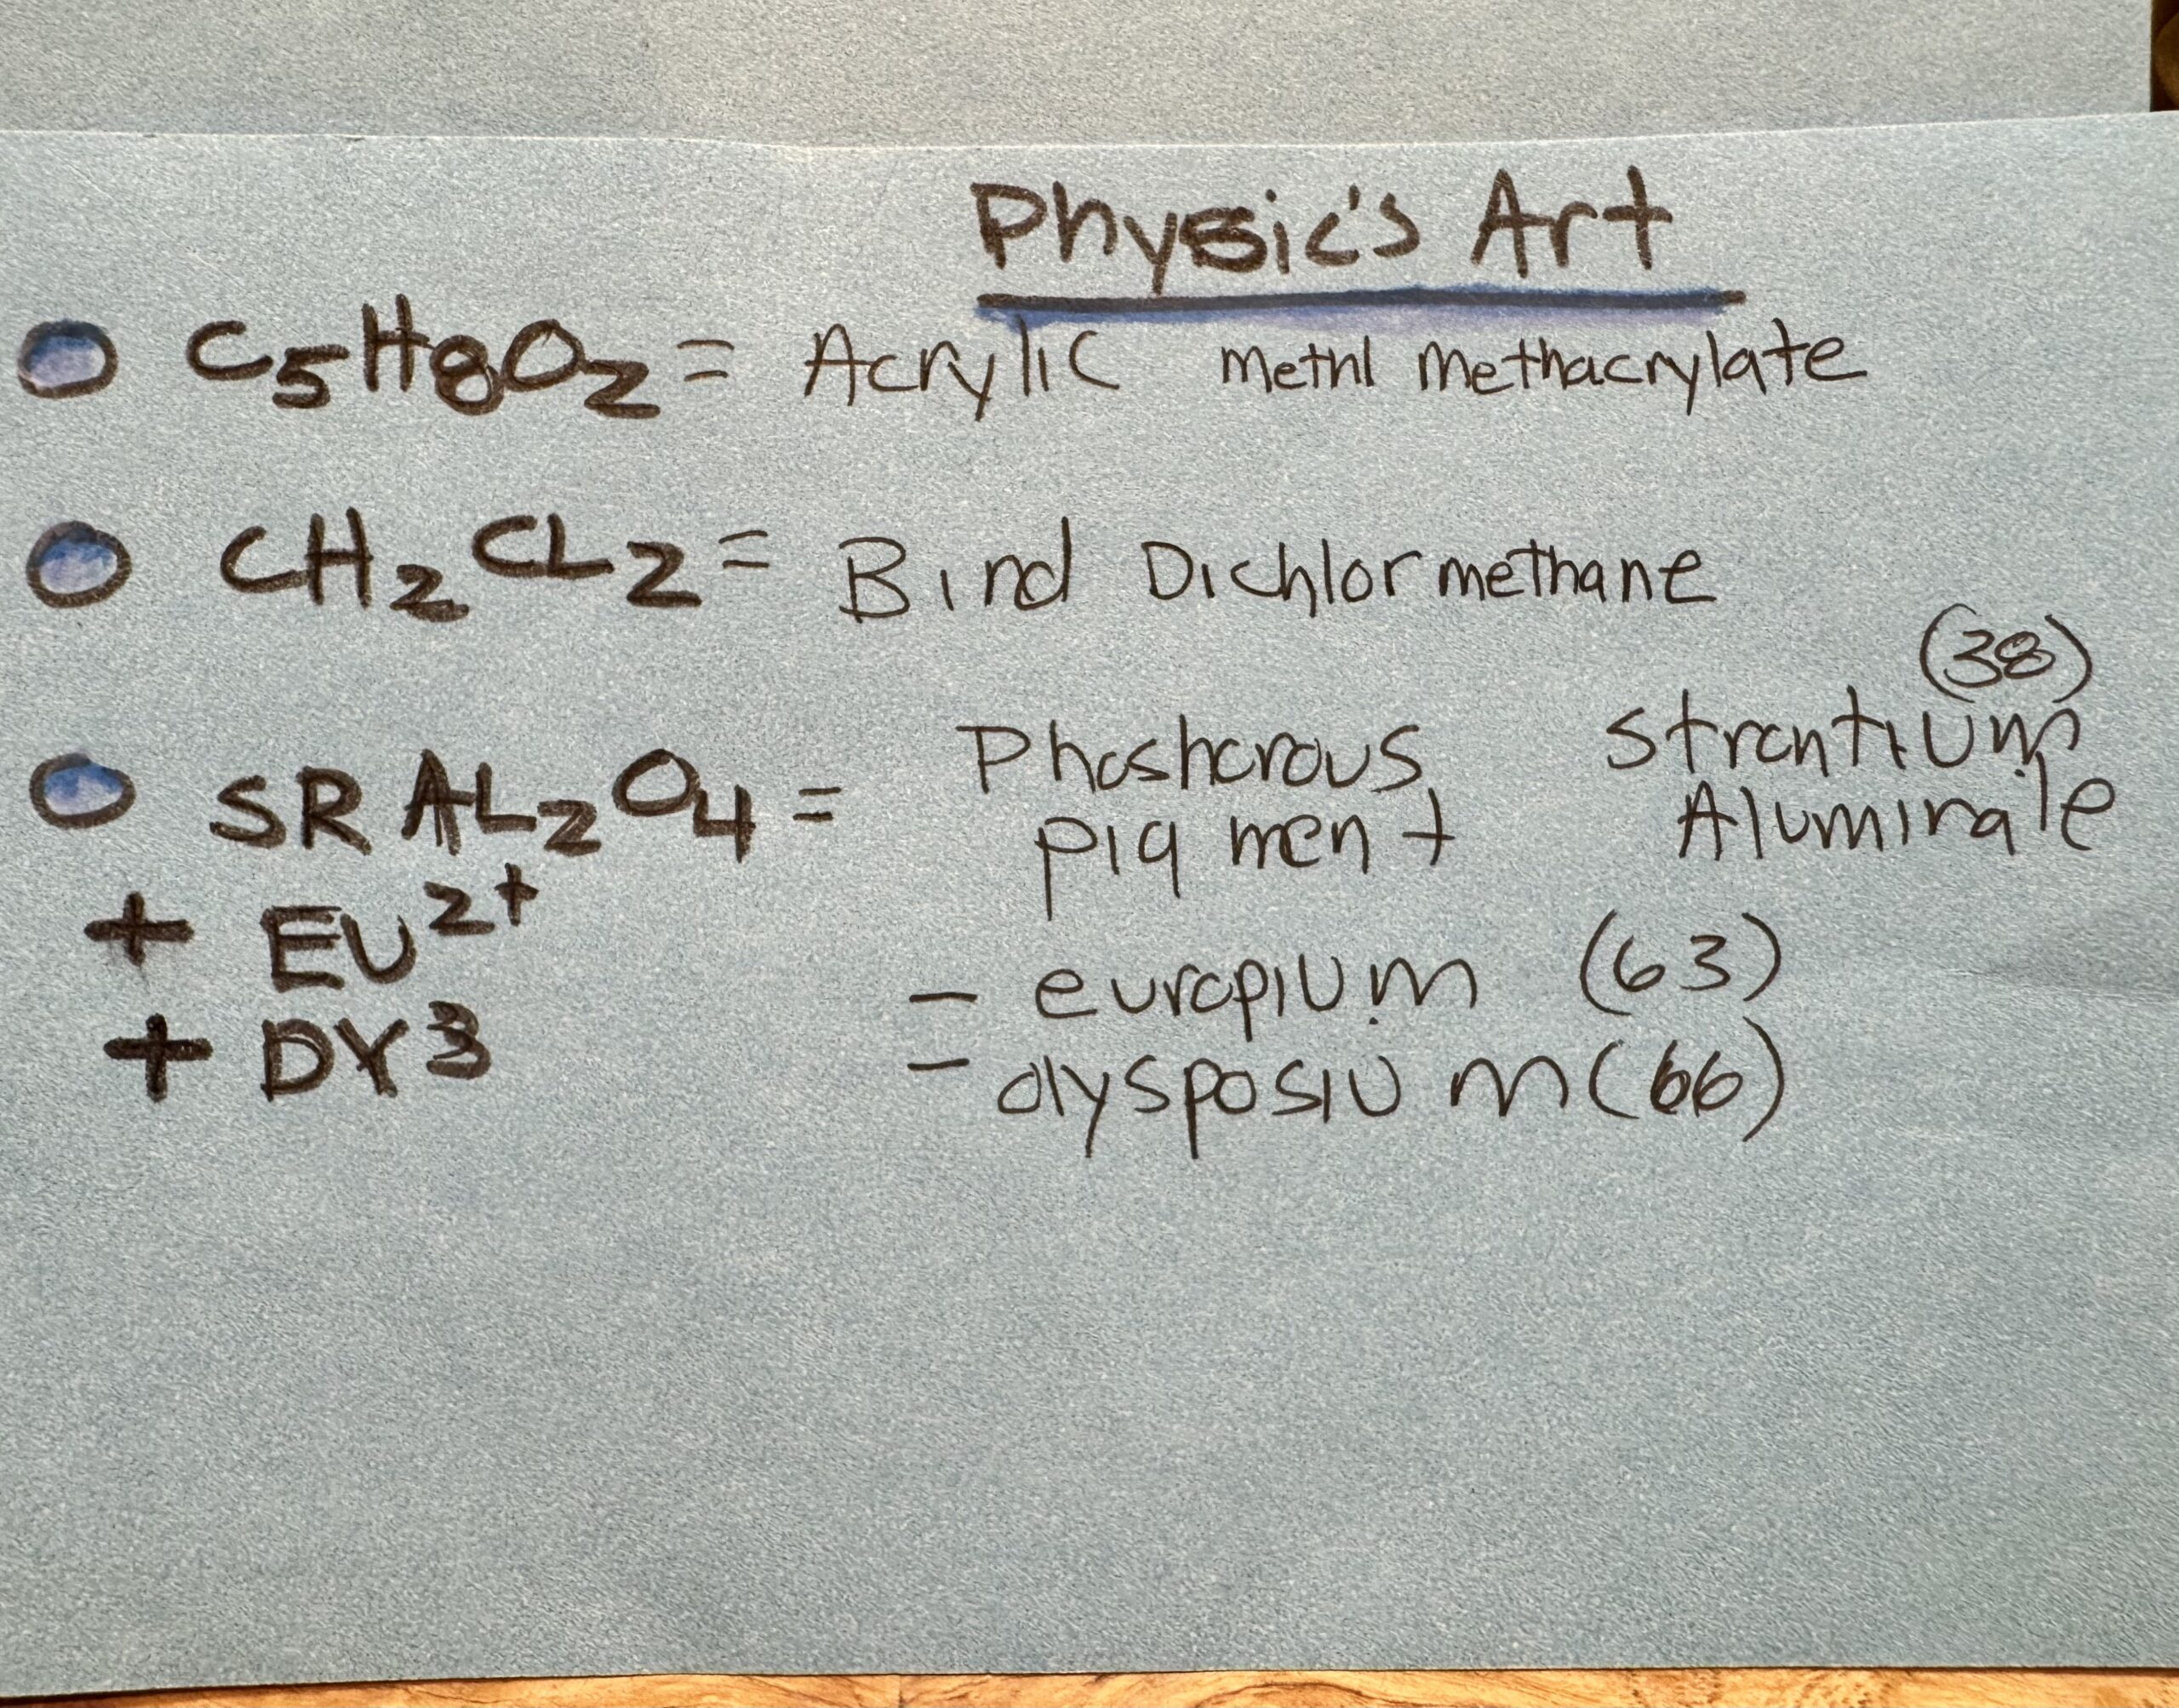 Physic's Art
C5H8O2 = Acrylic methl methacrylate
CH2CL2 = Bind Dichlormethane
(38)
SRAL2O4 = Phoshorous strontium
pigment Aluminale
+ EU2+ - europium (63)
+ DY3 - dysposium (66)